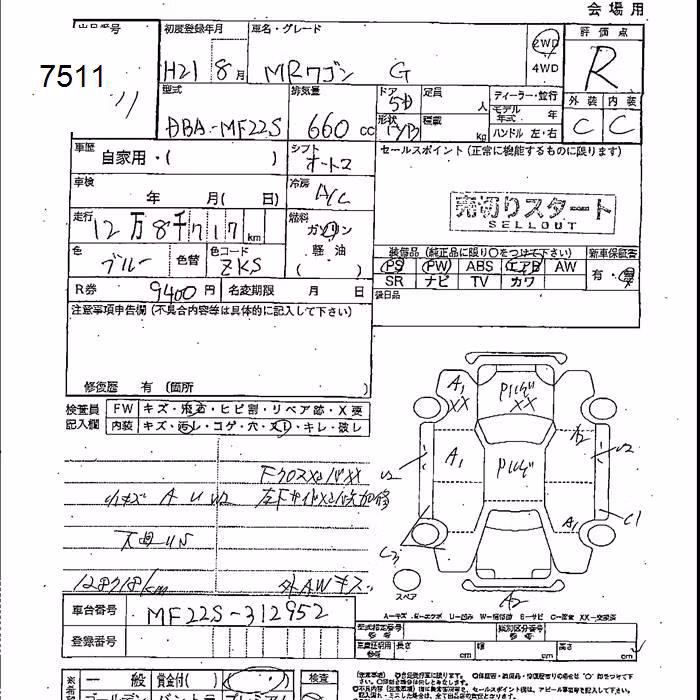 会場用
7511
初度登録年月
車名・グレード
評価点
H21 8月
MRワゴン G
2WD
4WD
R
型式
排気量
ドア
定員
ディーラー・並行
外装
内装
5D
人
モデル年式
年
DBA-MF22S
660 cc
形状
積載
kg
ハンドル 左・右
C C
車歴
自家用・( )
シフト
オートマ
セールスポイント(正常に機能するものに限ります)
車検
年 月( 日)
冷房
A/C
売切りスタート
SELLOUT
走行
12万8千717km
燃料
ガソリン
軽油
( )
色
ブルー
色替
色コード
ZKS
装備品(純正品に限り〇をつけて下さい)
新車保証書
PS PW ABS エアB AW
有・無
SR ナビ TV カワ
R券
9400円
名変期限
月 日
後日品
注意事項申告欄(不具合内容等は具体的に記入して下さい)
修復歴 有(箇所 )
検査員
記入欄
FW
キズ・飛石・ヒビ割・リペア跡・X要
内装
キズ・汚レ・コゲ・穴・スリ・キレ・破レ
A1
XX
XX
A2
U2
A1
U2
小キズ A U W2
A1
C1
C3
128718km
外AWキズ
スペア
A2
車台番号
MF22S-312952
登録番号
型式指定番号
参考
類別区分番号
参考
長さ
cm
幅
cm
高さ
cm
一般
賞金付( )
検査